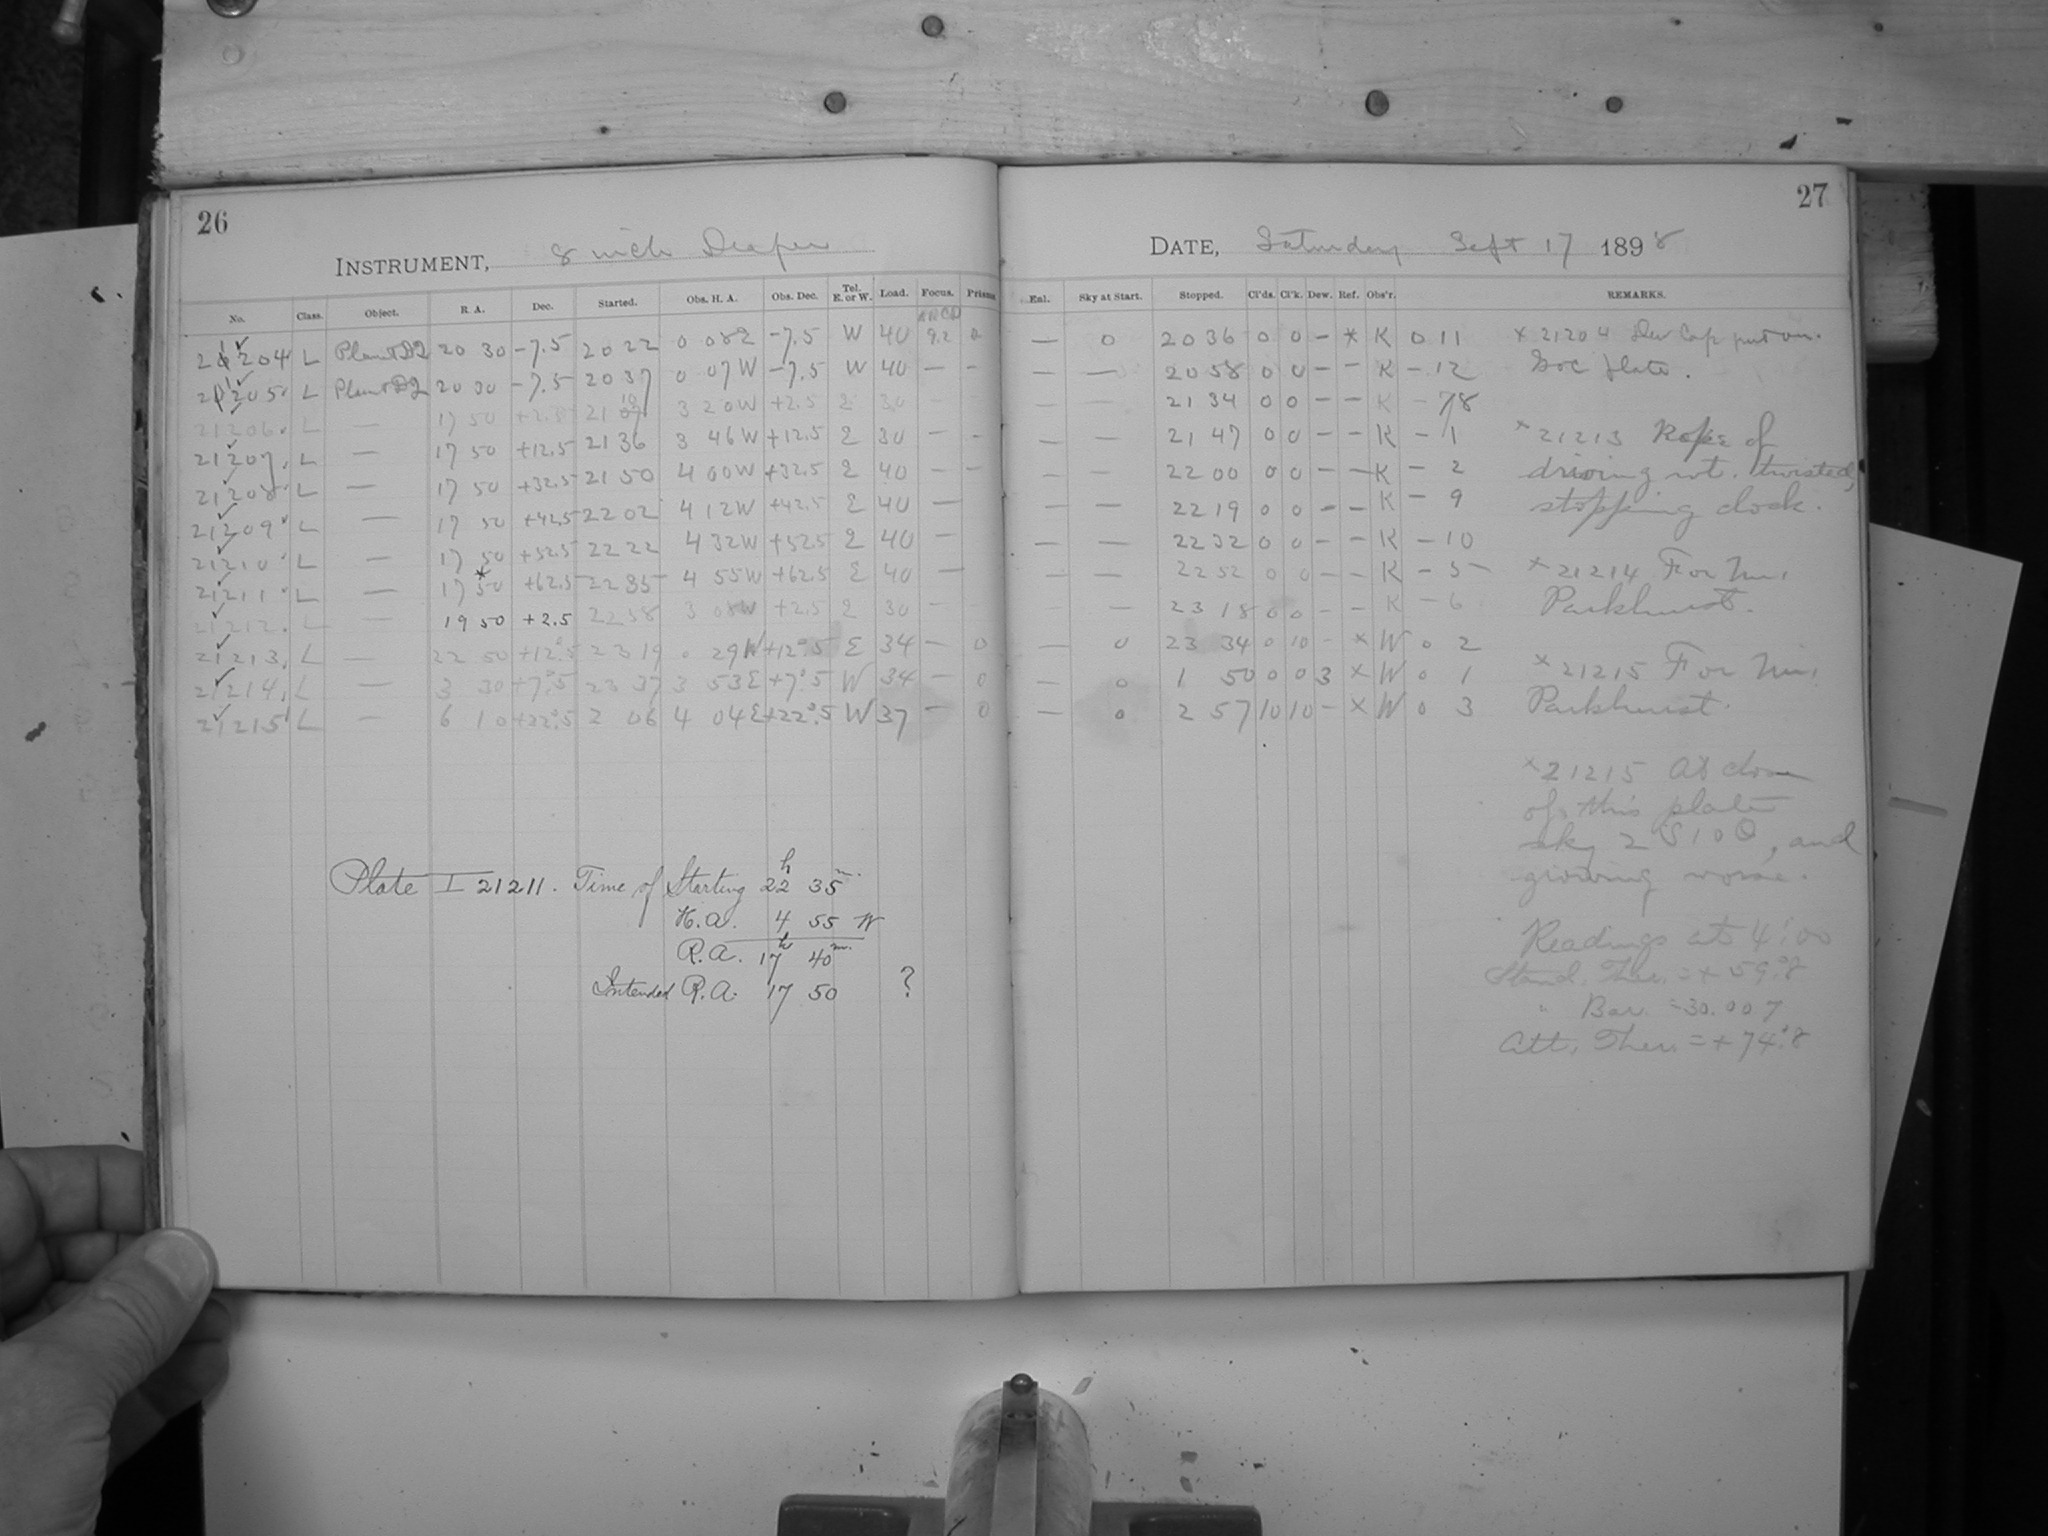 26
INSTRUMENT, 8 inch Draper
No. Class. Object. R. A. Dec. Started. Obs. H. A. Obs. Dec. Tel. E. or W. Load. Focus. Prisms
21204 L Planet DQ 20 30 -7.5 20 22 0 08E -7.5 W 40 9.2 0
21205 L Planet DQ 20 30 -7.5 20 37 0 07W -7.5 W 40 — —
21206 L — 17 50 +2.5 21 10 3 20W +2.5 E 30 —
21207 L — 17 50 +12.5 21 36 3 46W +12.5 E 30 — —
21208 L — 17 50 +32.5 21 50 4 00W +32.5 E 40 — —
21209 L — 17 50 +42.5 22 02 4 12W +42.5 E 40 —
21210 L — 17 50 +52.5 22 22 4 32W +52.5 E 40 —
21211 L — 17 50* +62.5 22 35 4 55W +62.5 E 40 —
21212 L — 19 50 +2.5 22 58 3 08W +2.5 E 30 —
21213 L — 22 50 +12°.5 23 19 0 29W +12°.5 E 34 — 0
21214 L — 3 30 +7°.5 23 37 3 53E +7°.5 W 34 — 0
21215 L — 6 10 +22°.5 2 06 4 04E +22°.5 W 37 — 0
Plate I 21211. Time of Starting 22h 35m.
H.A. 4 55 W
R.A. 17h 40m.
Intended R.A. 17 50 ?
27
DATE, Saturday Sept 17 1898
Enl. Sky at Start. Stopped. Cl'ds. Cl'k. Dew. Ref. Obs'r. REMARKS.
— 0 20 36 0 0 — * K 0 11
— — 20 58 0 0 — — K — 12
— — 21 34 0 0 — — K — 78
— — 21 47 0 0 — — K — 1
— — 22 00 0 0 — — K — 2
— — 22 19 0 0 — — K — 9
— — 22 32 0 0 — — K — 10
— — 22 52 0 0 — — K — 5
— — 23 18 0 0 — — K — 6
— 0 23 34 0 10 - × W 0 2
— 0 1 50 0 0 3 × W 0 1
— 0 2 57 10 10 - × W 0 3
× 21204 Dew Cap put on.
plate.
× 21213 Rope of
driving wt. twisted,
stopping clock.
× 21214 For Mr.
Parkhurst.
× 21215 For Mr.
Parkhurst.
× 21215 At close
of this plate
sky 2 S 10 Θ, and
growing worse.
Readings at 4:00
Stand. Ther. = + 59.°8
" Bar. = 30.007
Att. Ther. = + 74.°8